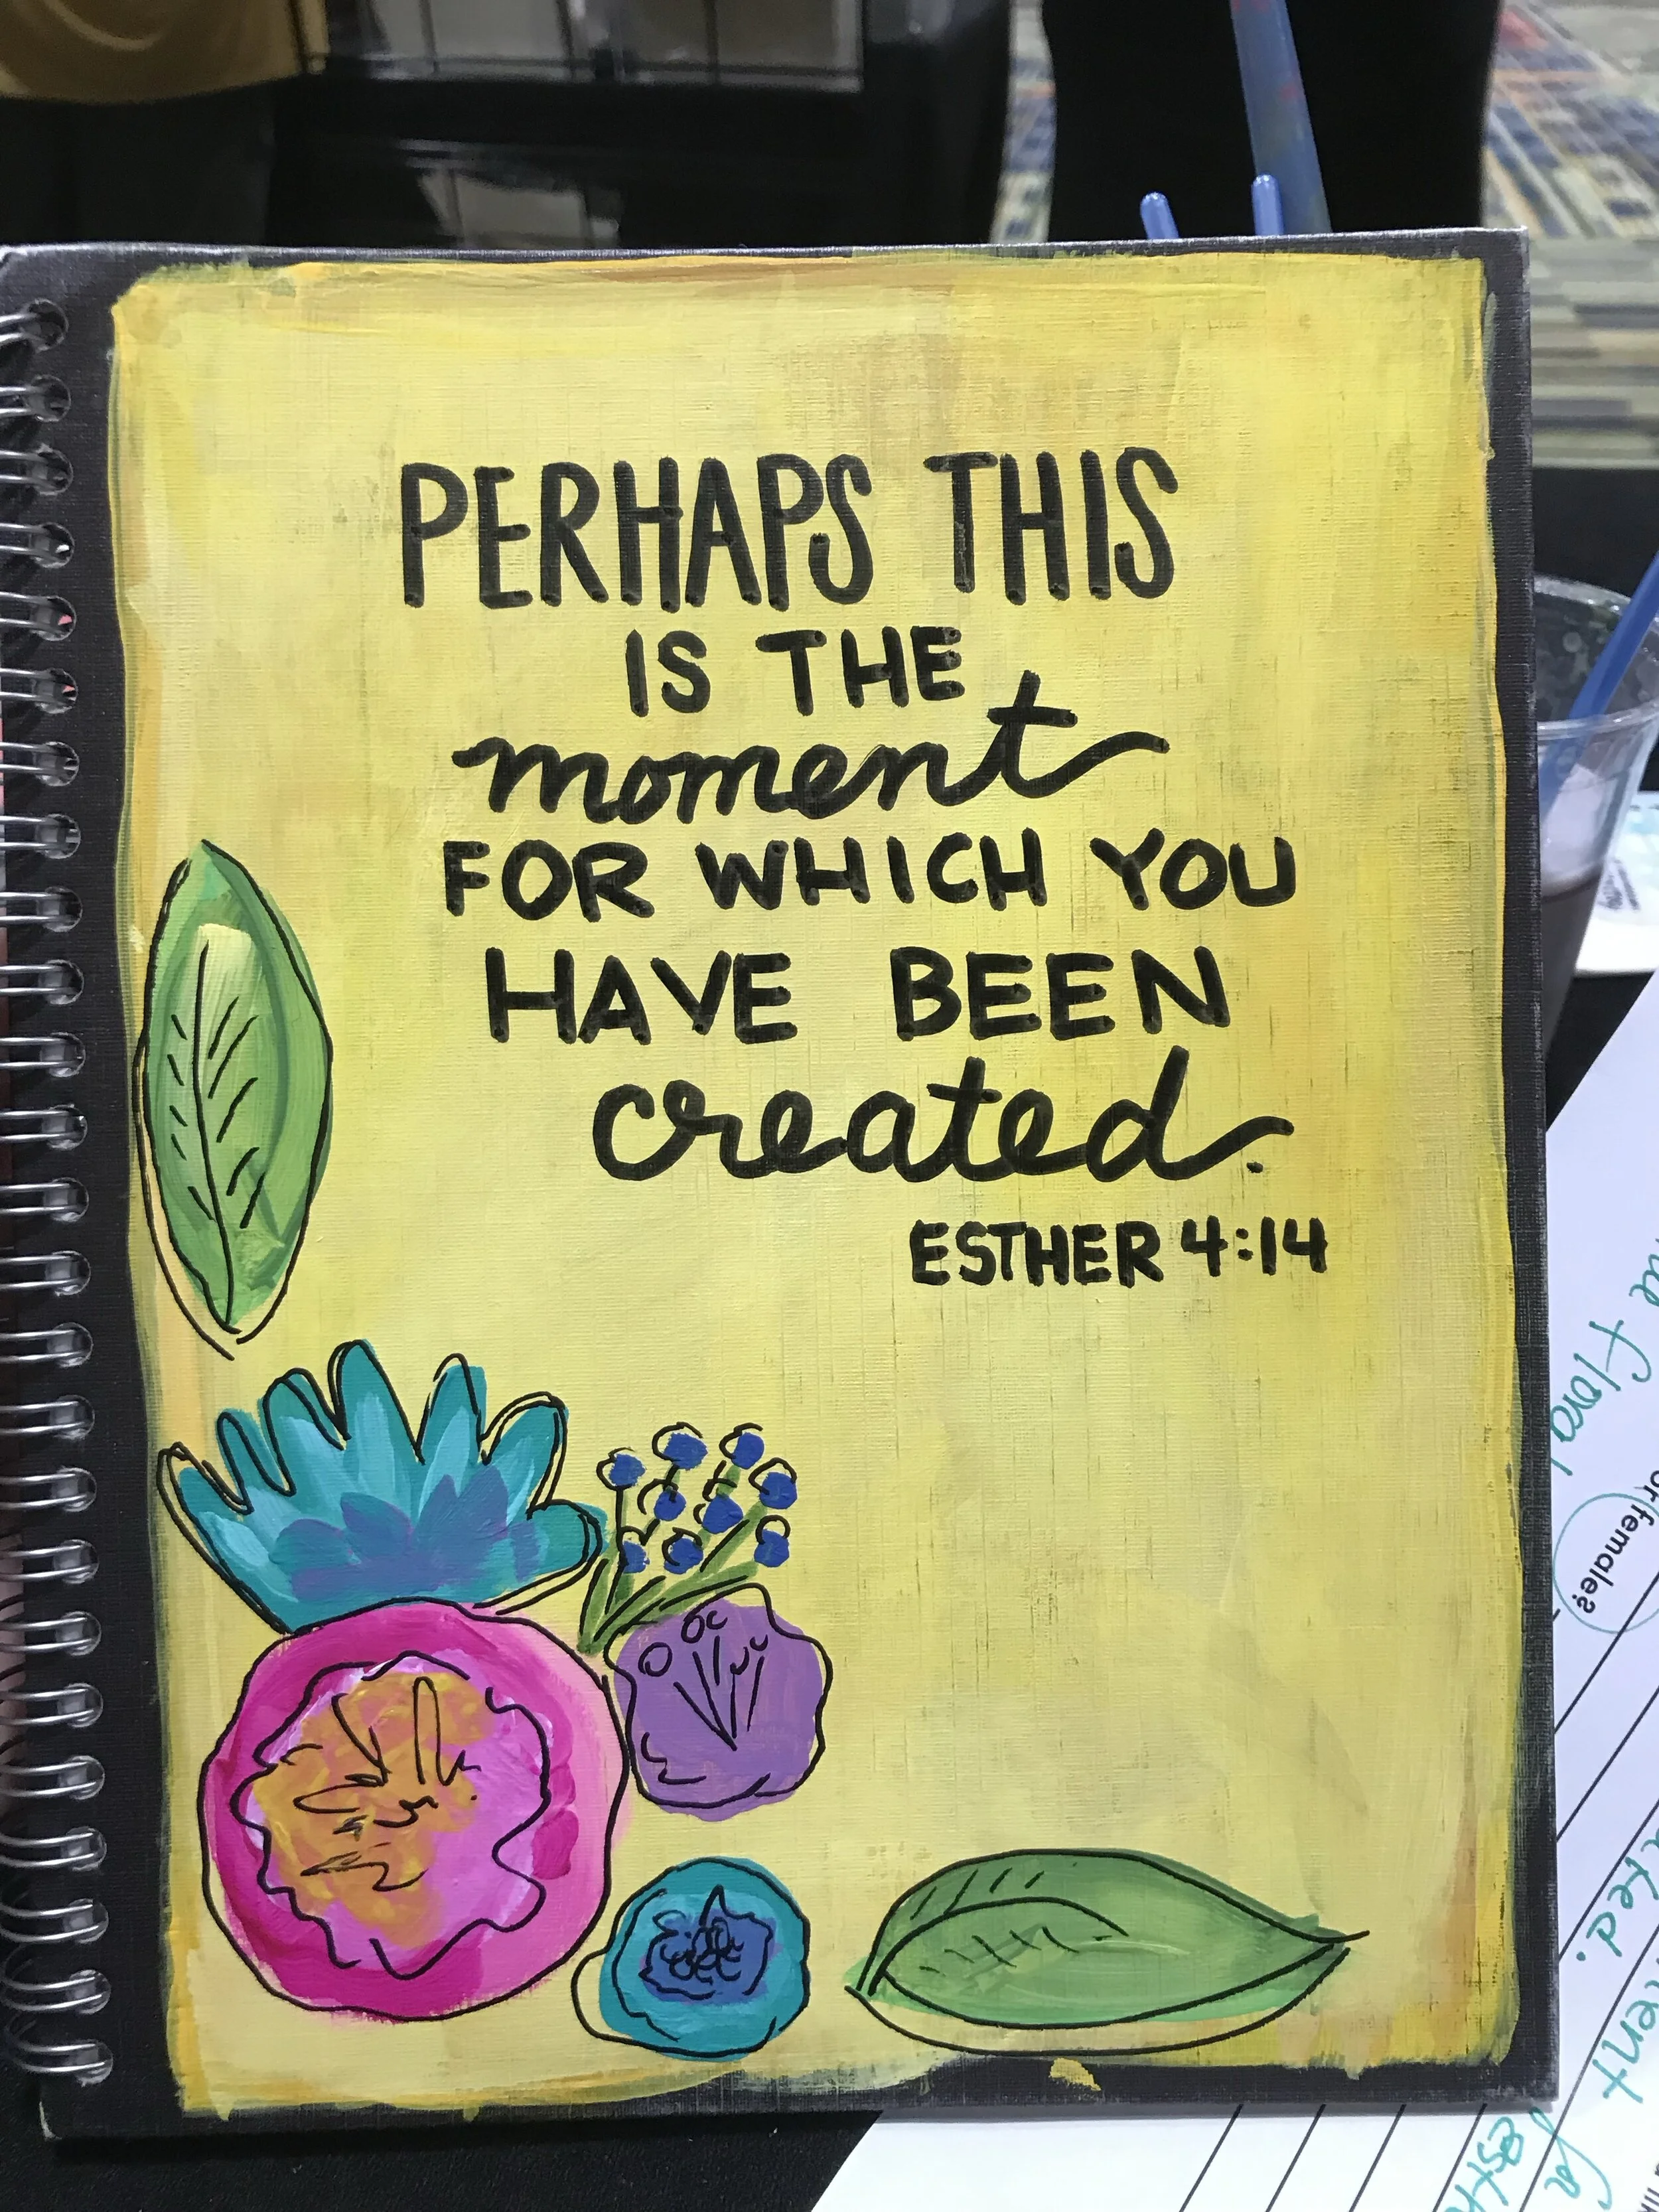 PERHAPS THIS
IS THE
moment
FOR WHICH YOU
HAVE BEEN
created.
ESTHER 4:14
floral
or female?